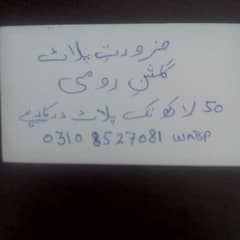 ضرورت پلاٹ
گلشن رومی
50 لاکھ تک پلاٹ درکار ہے
0310 8527081 WATSP